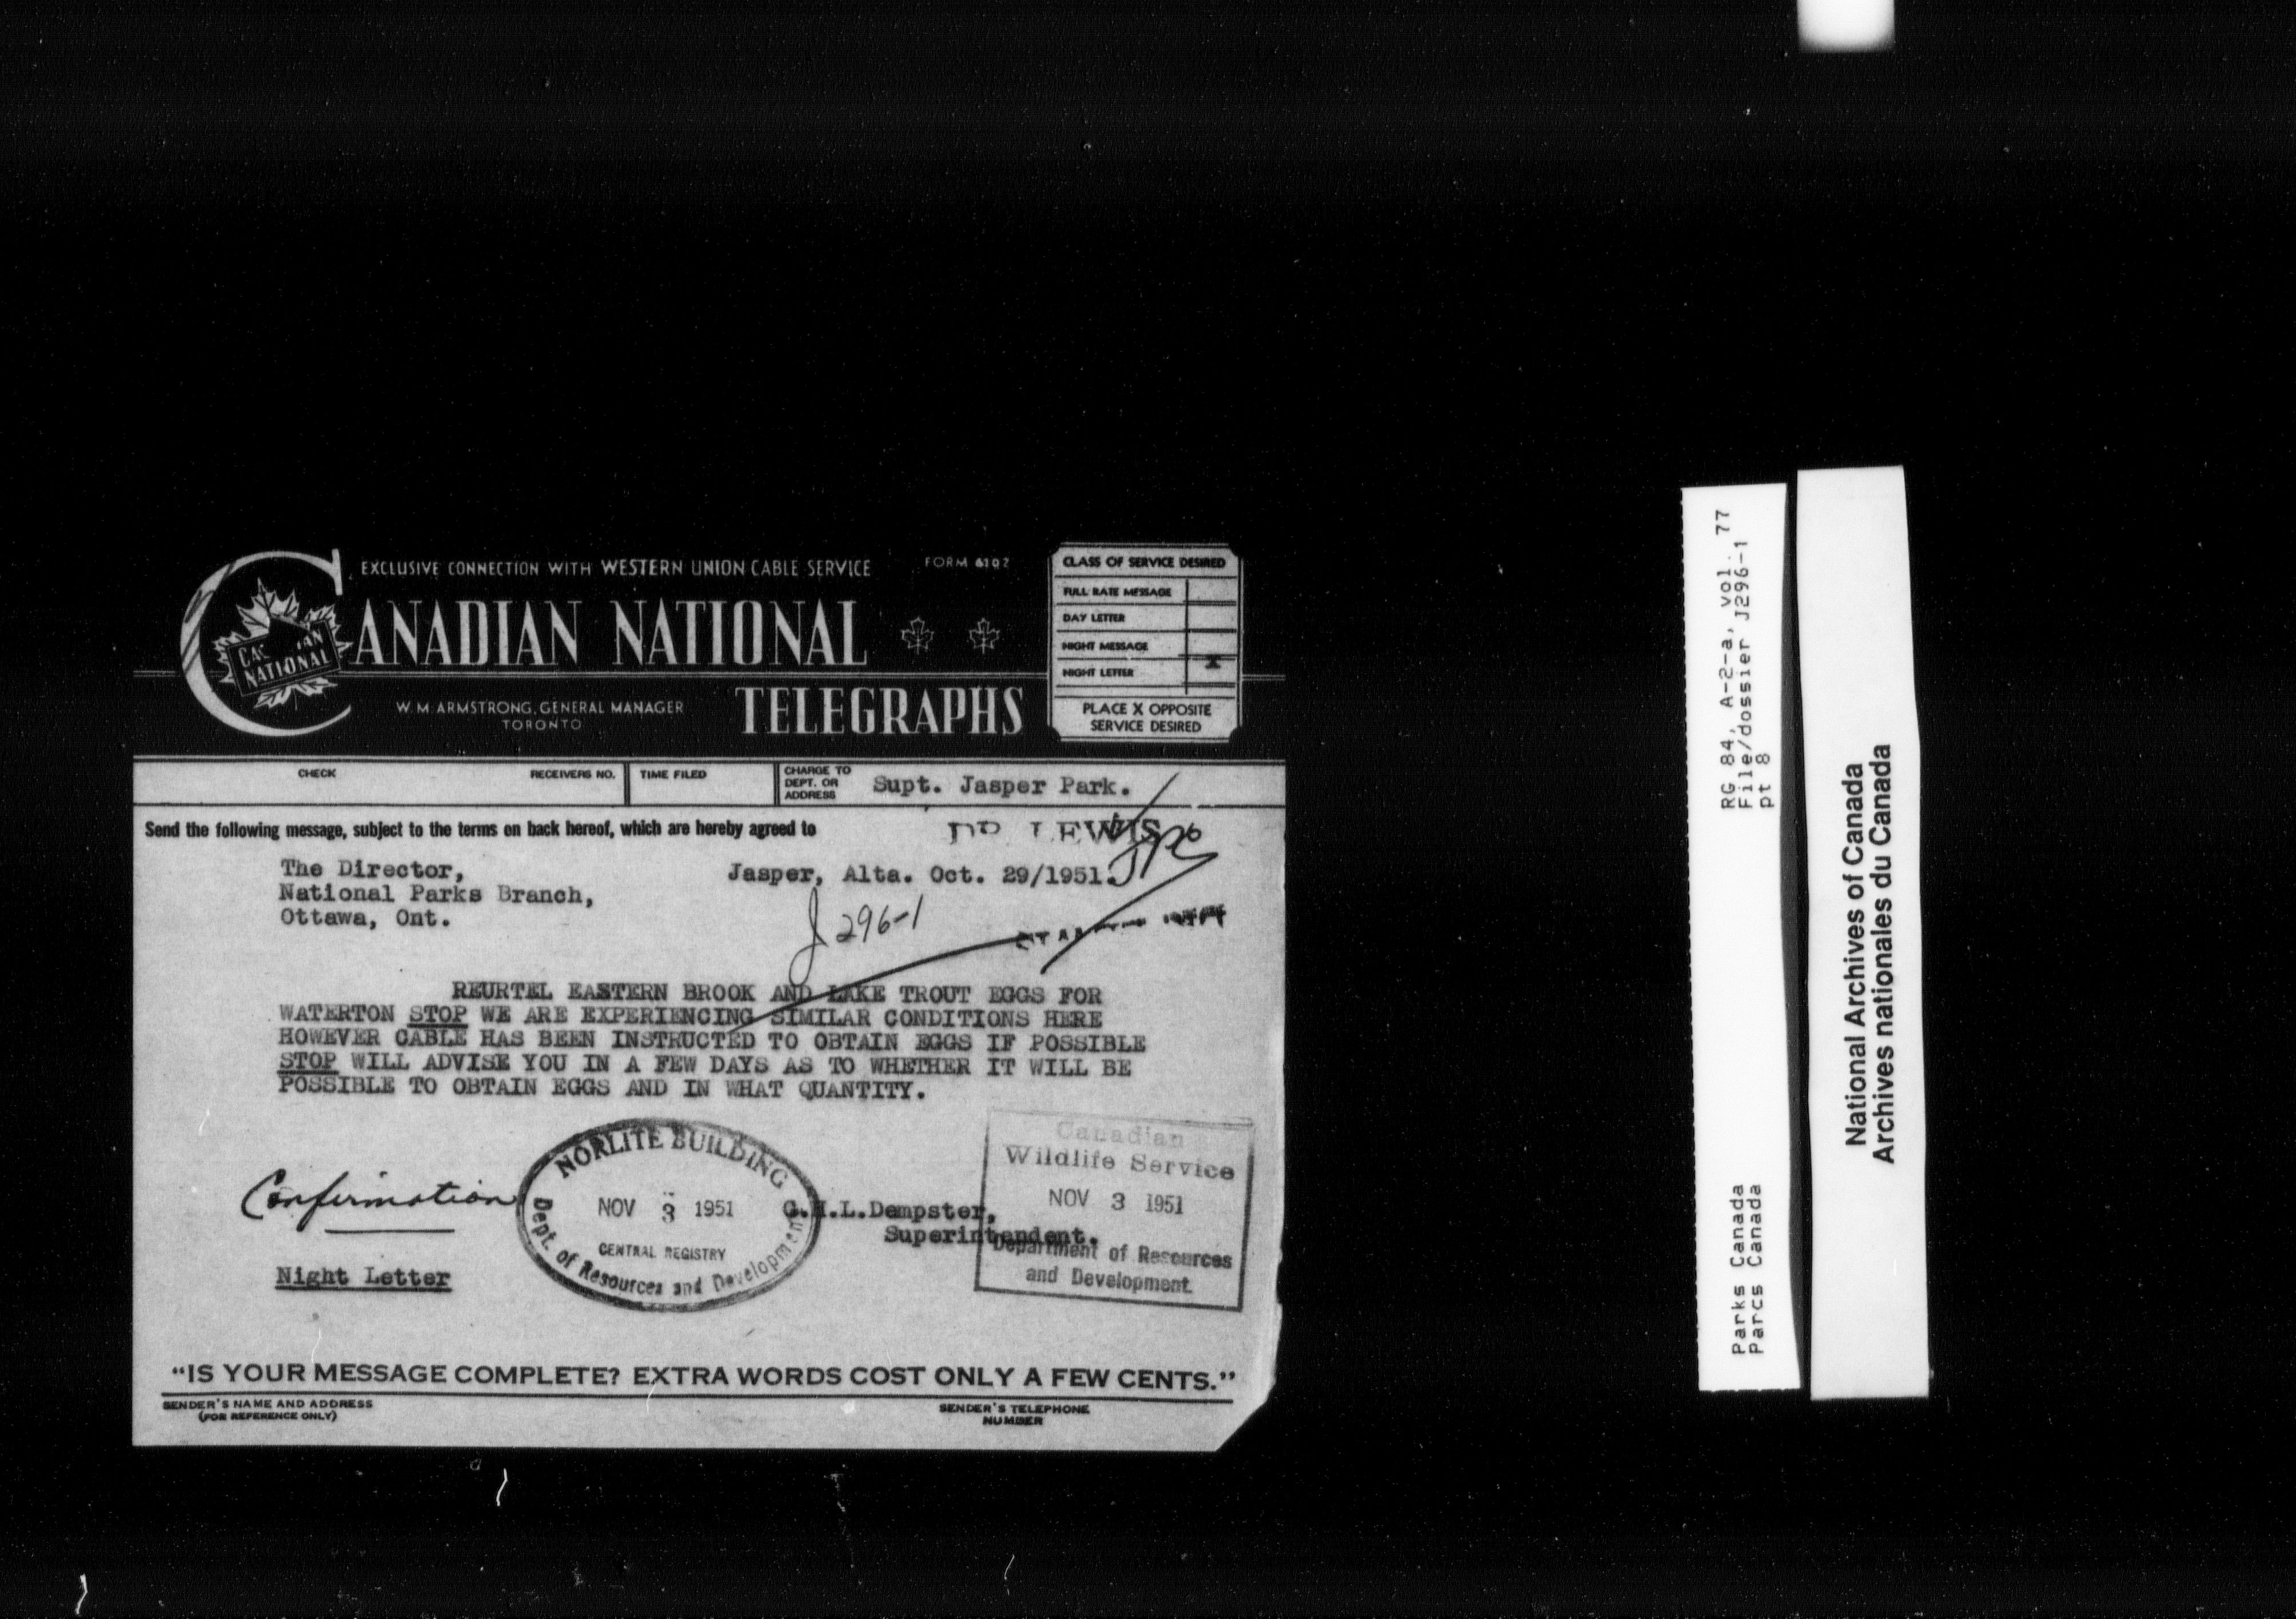 EXCLUSIVE CONNECTION WITH WESTERN UNION CABLE SERVICE
FORM 6102
CANADIAN NATIONAL
NATIONAL
TELEGRAPHS
W. M. ARMSTRONG, GENERAL MANAGER
TORONTO
CLASS OF SERVICE DESIRED
FULL RATE MESSAGE
DAY LETTER
NIGHT MESSAGE
NIGHT LETTER X
PLACE X OPPOSITE
SERVICE DESIRED
CHECK
RECEIVERS NO.
TIME FILED
CHARGE TO
DEPT. OR
ADDRESS
Supt. Jasper Park.
Send the following message, subject to the terms on back hereof, which are hereby agreed to
DR LEWIS
The Director,
National Parks Branch,
Ottawa, Ont.
Jasper, Alta. Oct. 29/1951.
J 296-1
REURTEL EASTERN BROOK AND LAKE TROUT EGGS FOR
WATERTON STOP WE ARE EXPERIENCING SIMILAR CONDITIONS HERE
HOWEVER CABLE HAS BEEN INSTRUCTED TO OBTAIN EGGS IF POSSIBLE
STOP WILL ADVISE YOU IN A FEW DAYS AS TO WHETHER IT WILL BE
POSSIBLE TO OBTAIN EGGS AND IN WHAT QUANTITY.
Confirmation
Night Letter
NORLITE BUILDING
NOV 3 1951
CENTRAL REGISTRY
Dept. of Resources and Development
G.H.L.Dempster,
Superintendent.
Canadian
Wildlife Service
NOV 3 1951
Department of Resources
and Development
"IS YOUR MESSAGE COMPLETE? EXTRA WORDS COST ONLY A FEW CENTS."
SENDER'S NAME AND ADDRESS
(FOR REFERENCE ONLY)
SENDER'S TELEPHONE
NUMBER
RG 84, A-2-a, vol. 77
File/dossier J296-1
pt 8
Parks Canada
Parcs Canada
National Archives of Canada
Archives nationales du Canada